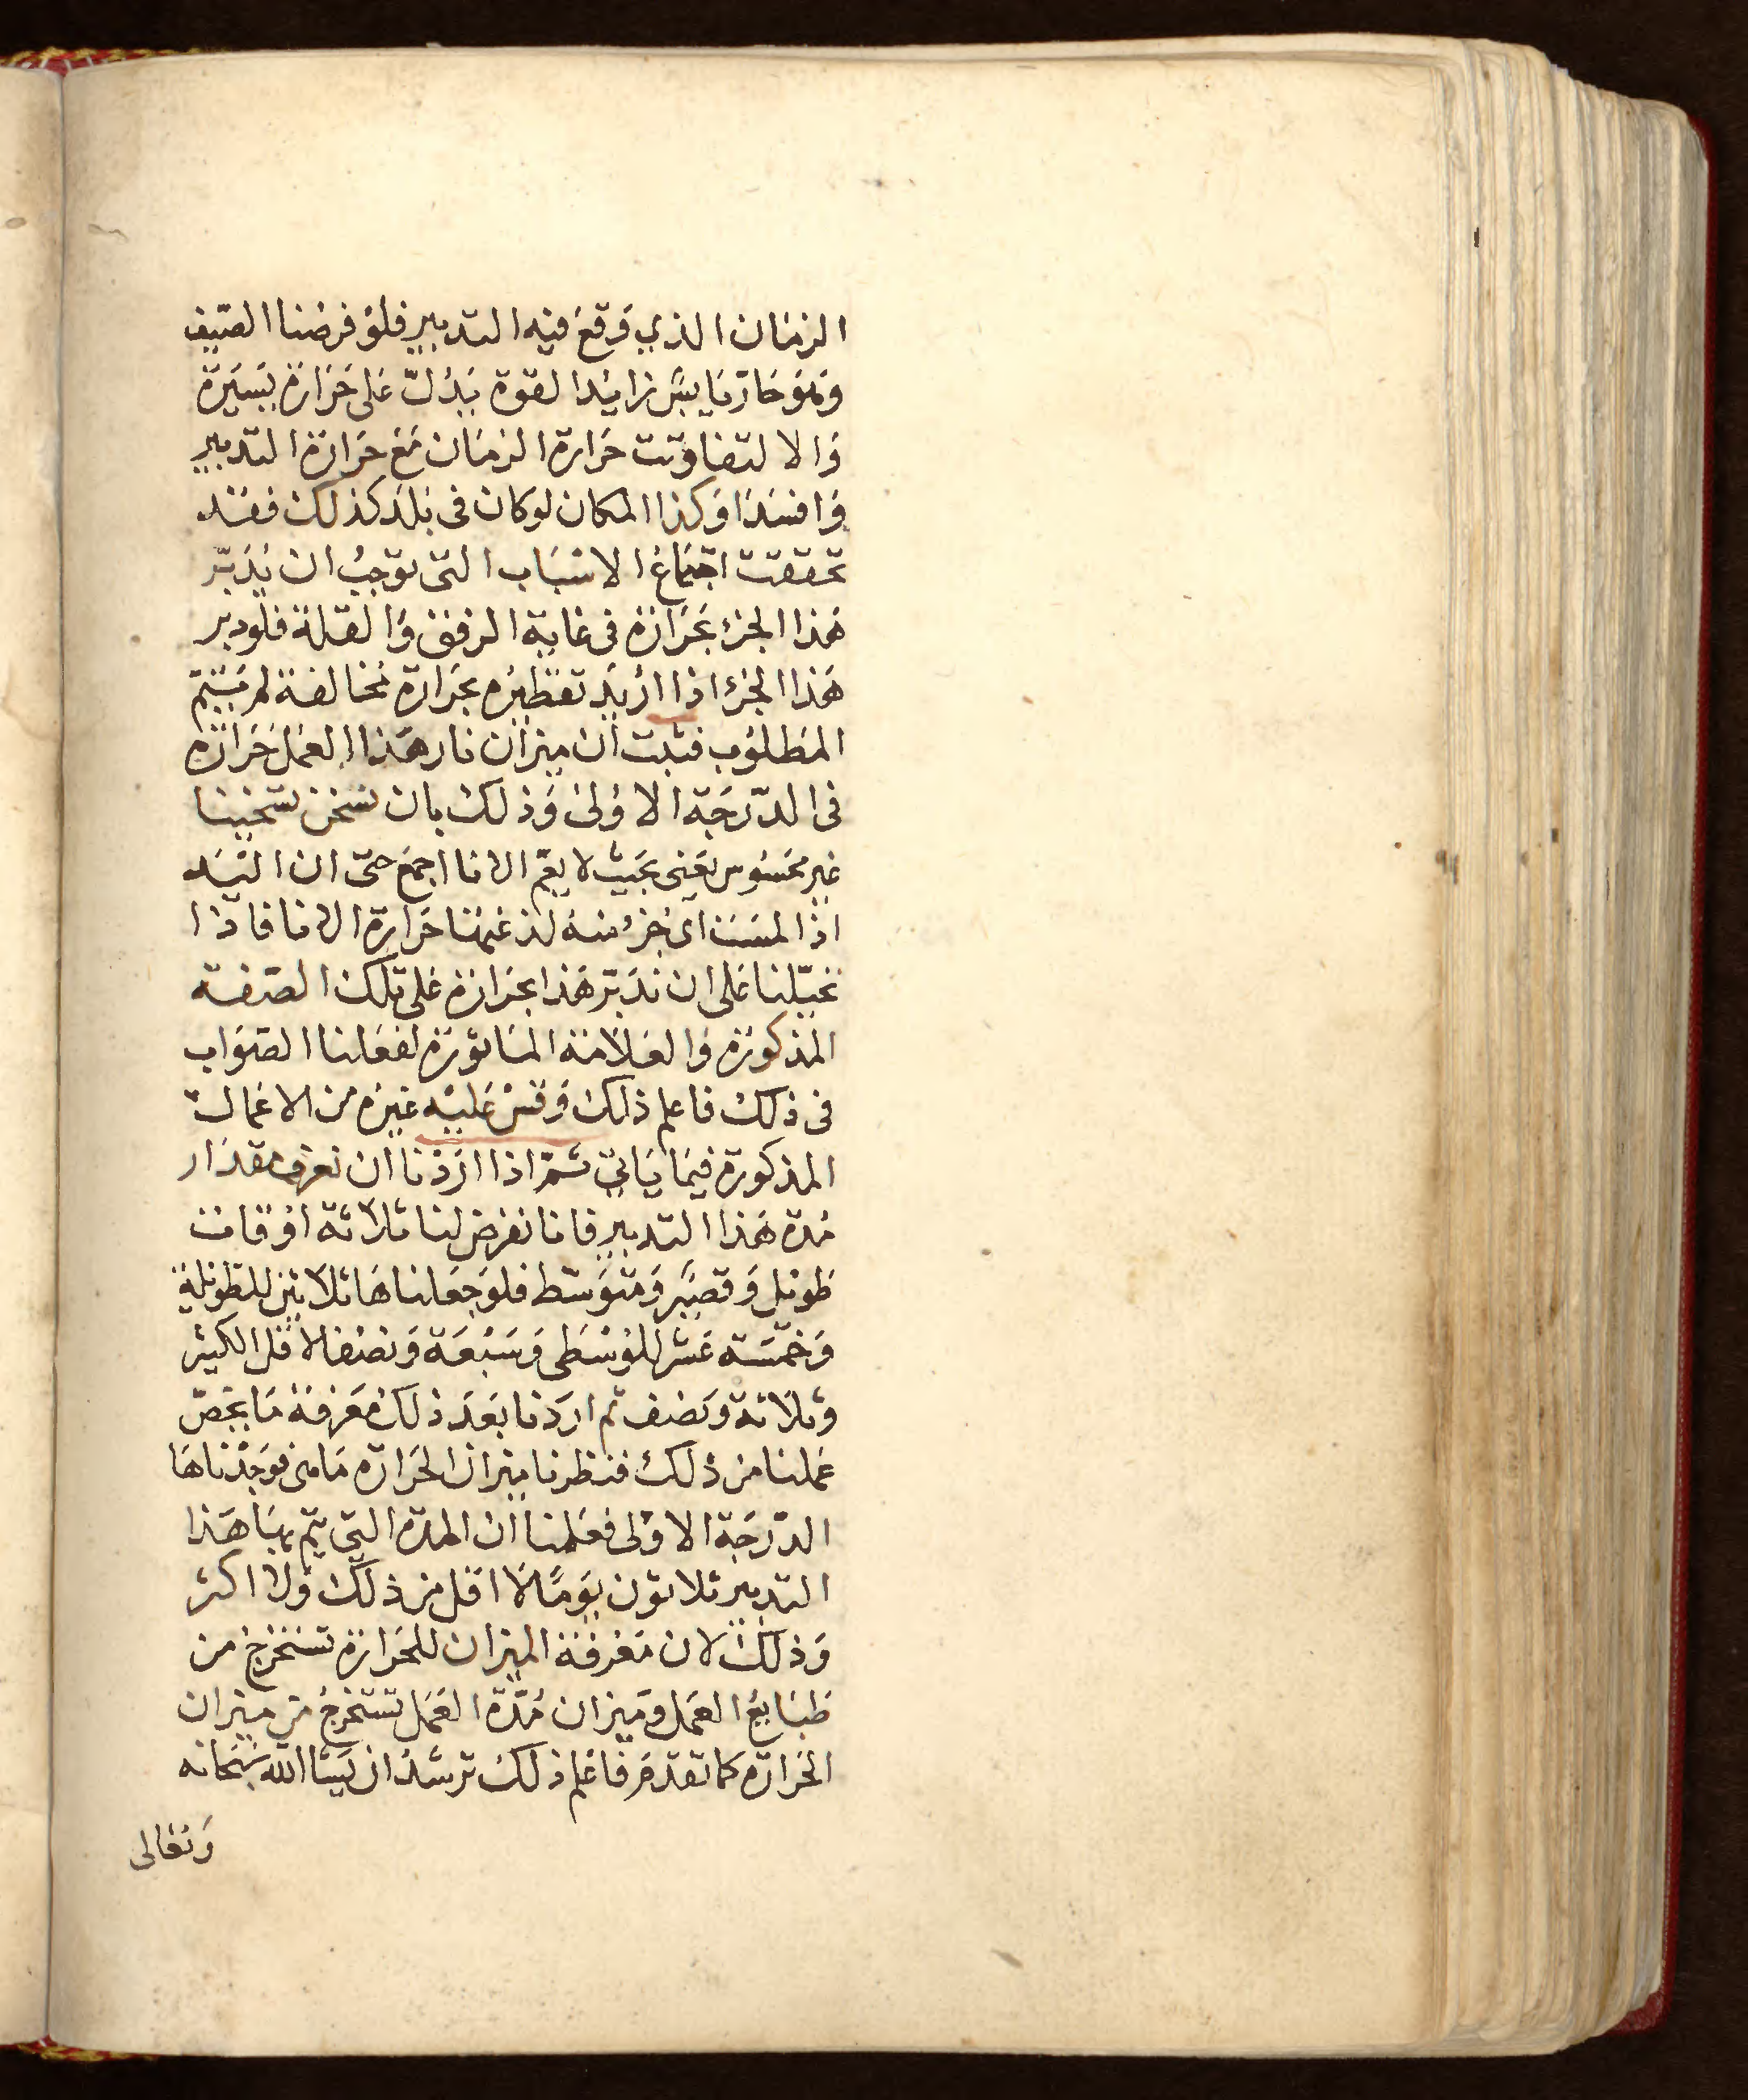 الزمان الذي وقع فيه التدبير فلو فرضنا الصيف
وهو حار يابس زايد القوة يدل على حرارة يسيرة
والا لتفاوتت حرارة الزمان مع حرارة التدبير
وافسدا وكذا المكان لوكان فى بلد كذلك فقد
تحققت اجتماع الاسباب التى توجب ان يدبر
هذا الجزء بحرارة فى غاية الرفق والقلة فلودبر
هذا الجزء اذا اريد تقطيره بحرارة مخالفة لم يتم
المطلوب فثبت ان ميزان نار هذا العمل حرارة
فى الدرجة الاولى وذلك بان تسخن تسخينا
غير محسوس يعنى بحيث لا يعم الانا اجمع حتى ان اليد
اذا لمست اى جزء منه لذعتها حرارة الانا فاذا
تحيلنا على ان ندبر هذا بحرارة على تلك الصفة
المذكورة والعلامة الماثورة لفعلنا الصواب
فى ذلك فاعلم ذلك وقس عليه غيره من الاعمال
المذكورة فيما ياتى ثم اذا اردنا ان نعرف مقدار
مدة هذا التدبير فانا نفرض لنا ثلاثة اوقات
طويل وقصير ومتوسط فلو جعلناها ثلاثين للطويلة
وخمسة عشر للوسطى وسبعة ونصف لاقل الكثير
وثلاثة ونصف ثم اردنا بعد ذلك معرفة ما يخص
عملنا من ذلك فنظرنا ميزان الحرارة ما هى فوجدناها
الدرجة الاولى فعلمنا ان المدة التى يتم بها هذا
التدبير ثلاثون يوما لا اقل من ذلك ولا اكثر
وذلك لان معرفة الميزان للحرارة تستخرج من
طبايع العمل وميزان مدة العمل تستخرج من ميزان
الحرارة كما تقدم فاعلم ذلك ترشد ان يشا الله سبحانه
وتعالى